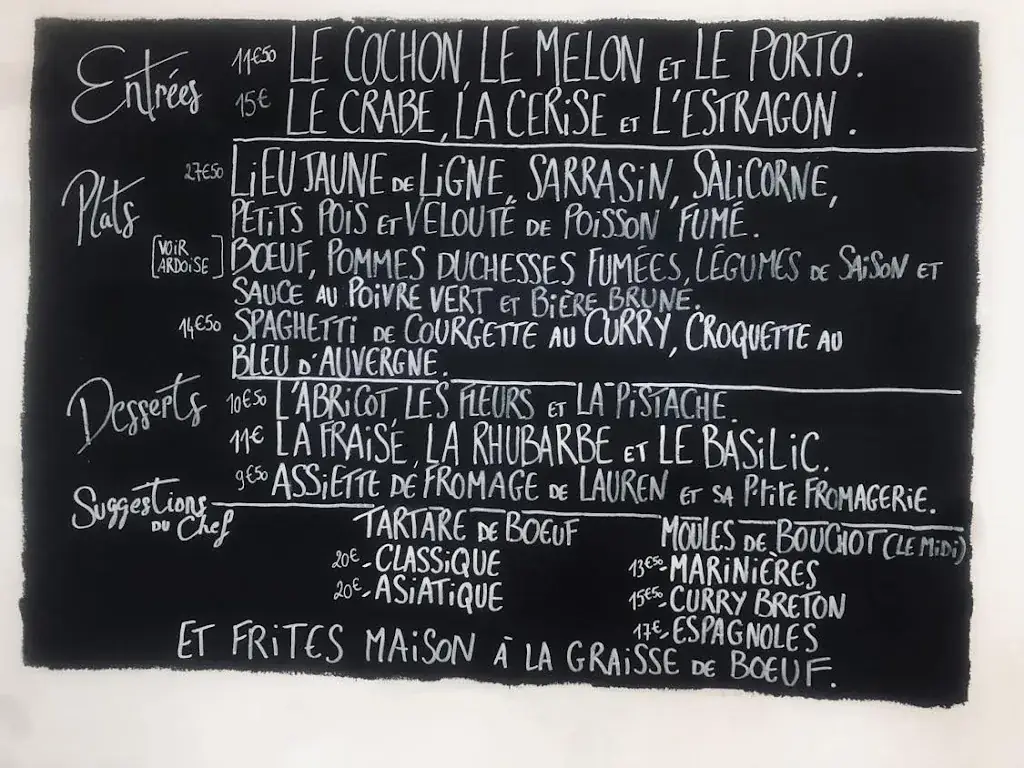 Entrées
11€50 LE COCHON, LE MELON ET LE PORTO.
15€ LE CRABE, LA CERISE ET L'ESTRAGON.
Plats
27€50 LIEU JAUNE DE LIGNE, SARRASIN, SALICORNE,
PETITS POIS ET VELOUTÉ DE POISSON FUMÉ.
[VOIR ARDOISE] BOEUF, POMMES DUCHESSES FUMÉES, LÉGUMES DE SAISON ET
SAUCE AU POIVRE VERT ET BIÈRE BRUNE.
14€50 SPAGHETTI DE COURGETTE AU CURRY, CROQUETTE AU
BLEU D'AUVERGNE.
Desserts
10€50 L'ABRICOT, LES FLEURS ET LA PISTACHE.
11€ LA FRAISE, LA RHUBARBE ET LE BASILIC.
9€50 ASSIETTE DE FROMAGE DE LAUREN ET SA P'tite FROMAGERIE.
Suggestions
DU Chef
TARTARE DE BOEUF
20€-CLASSIQUE
20€-ASIATIQUE
MOULES DE BOUCHOT (LE MIDI)
13€50-MARINIÈRES
15€50-CURRY BRETON
17€-ESPAGNOLES
ET FRITES MAISON À LA GRAISSE DE BOEUF.